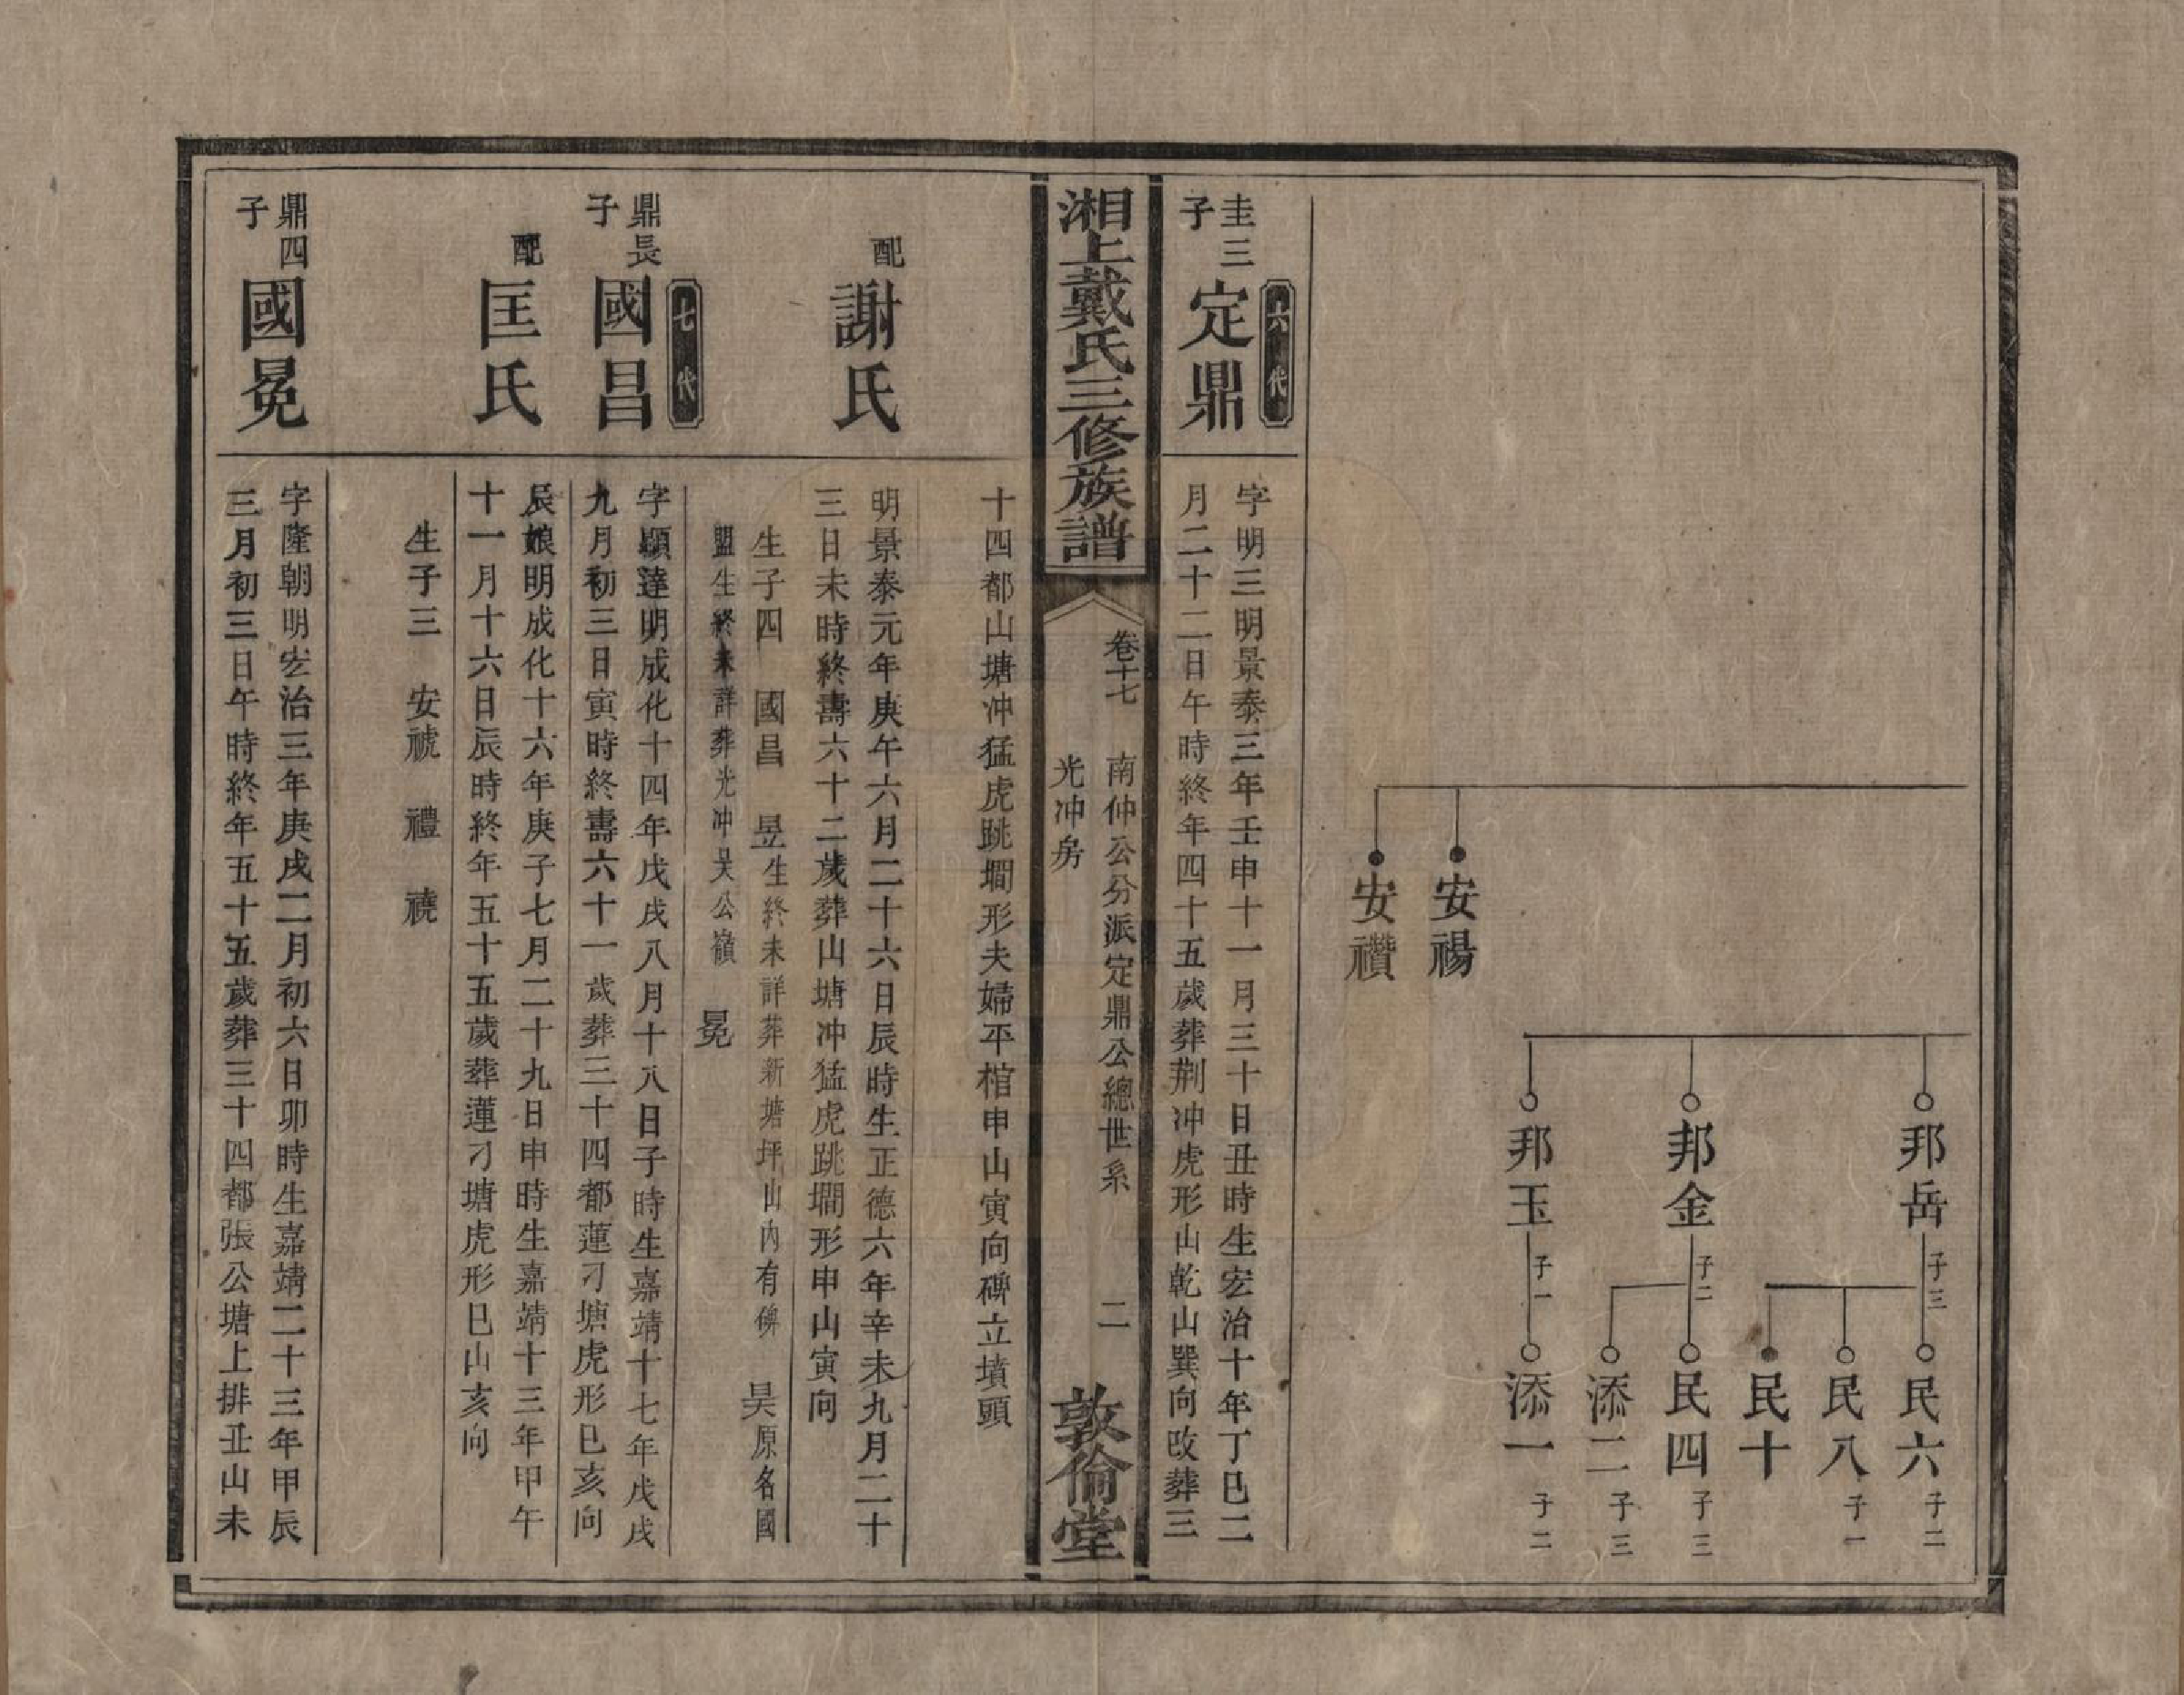 安禓
安禶
邦岳 子三
邦金 子二
邦玉 子一
民六 子二
民八 子一
民十
民四 子三
添二 子三
添一 子二
六代
圭三子 定鼎
字明三明景泰三年壬申十一月三十日丑時生宏治十年丁巳二
月二十二日午時終年四十五歲葬荆冲虎形山乾山巽向改葬三
湘上戴氏三修族譜
卷十七
南仲公分派定鼎公總世系
光冲房
二
敦倫堂
十四都山塘冲猛虎跳墹形夫婦平棺申山寅向碑立墳頭
配 謝氏
明景泰元年庚午六月二十六日辰時生正德六年辛未九月二十
三日未時終壽六十二歲葬山塘冲猛虎跳墹形申山寅向
生子四 國昌 昱生終未詳葬新塘坪山內有碑 昊原名國
盟生終未詳葬光冲吴公嶺 冕
七代
鼎長子 國昌
字顯達明成化十四年戊戌八月十八日子時生嘉靖十七年戊戌
九月初三日寅時終壽六十一歲葬三十四都蓮刁塘虎形巳亥向
配 匡氏
辰娘明成化十六年庚子七月二十九日申時生嘉靖十三年甲午
十一月十六日辰時終年五十五歲葬蓮刁塘虎形巳山亥向
生子三 安禠 禮 襓
鼎四子 國冕
字隆朝明宏治三年庚戌二月初六日卯時生嘉靖二十三年甲辰
三月初三日午時終年五十五歲葬三十四都張公塘上排丑山未